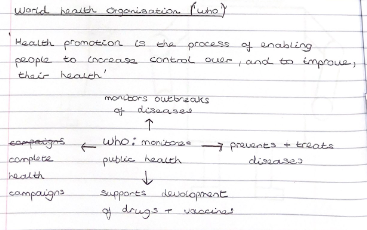 World health Organisation ('who')
'Health promotion is the process of enabling
people to increase control over, and to improve,
their health'
monitors outbreaks
of diseases
campaigns ← WHO: monitores → prevents + treats
complete public health diseases
health
campaigns supports development
of drugs + vaccines